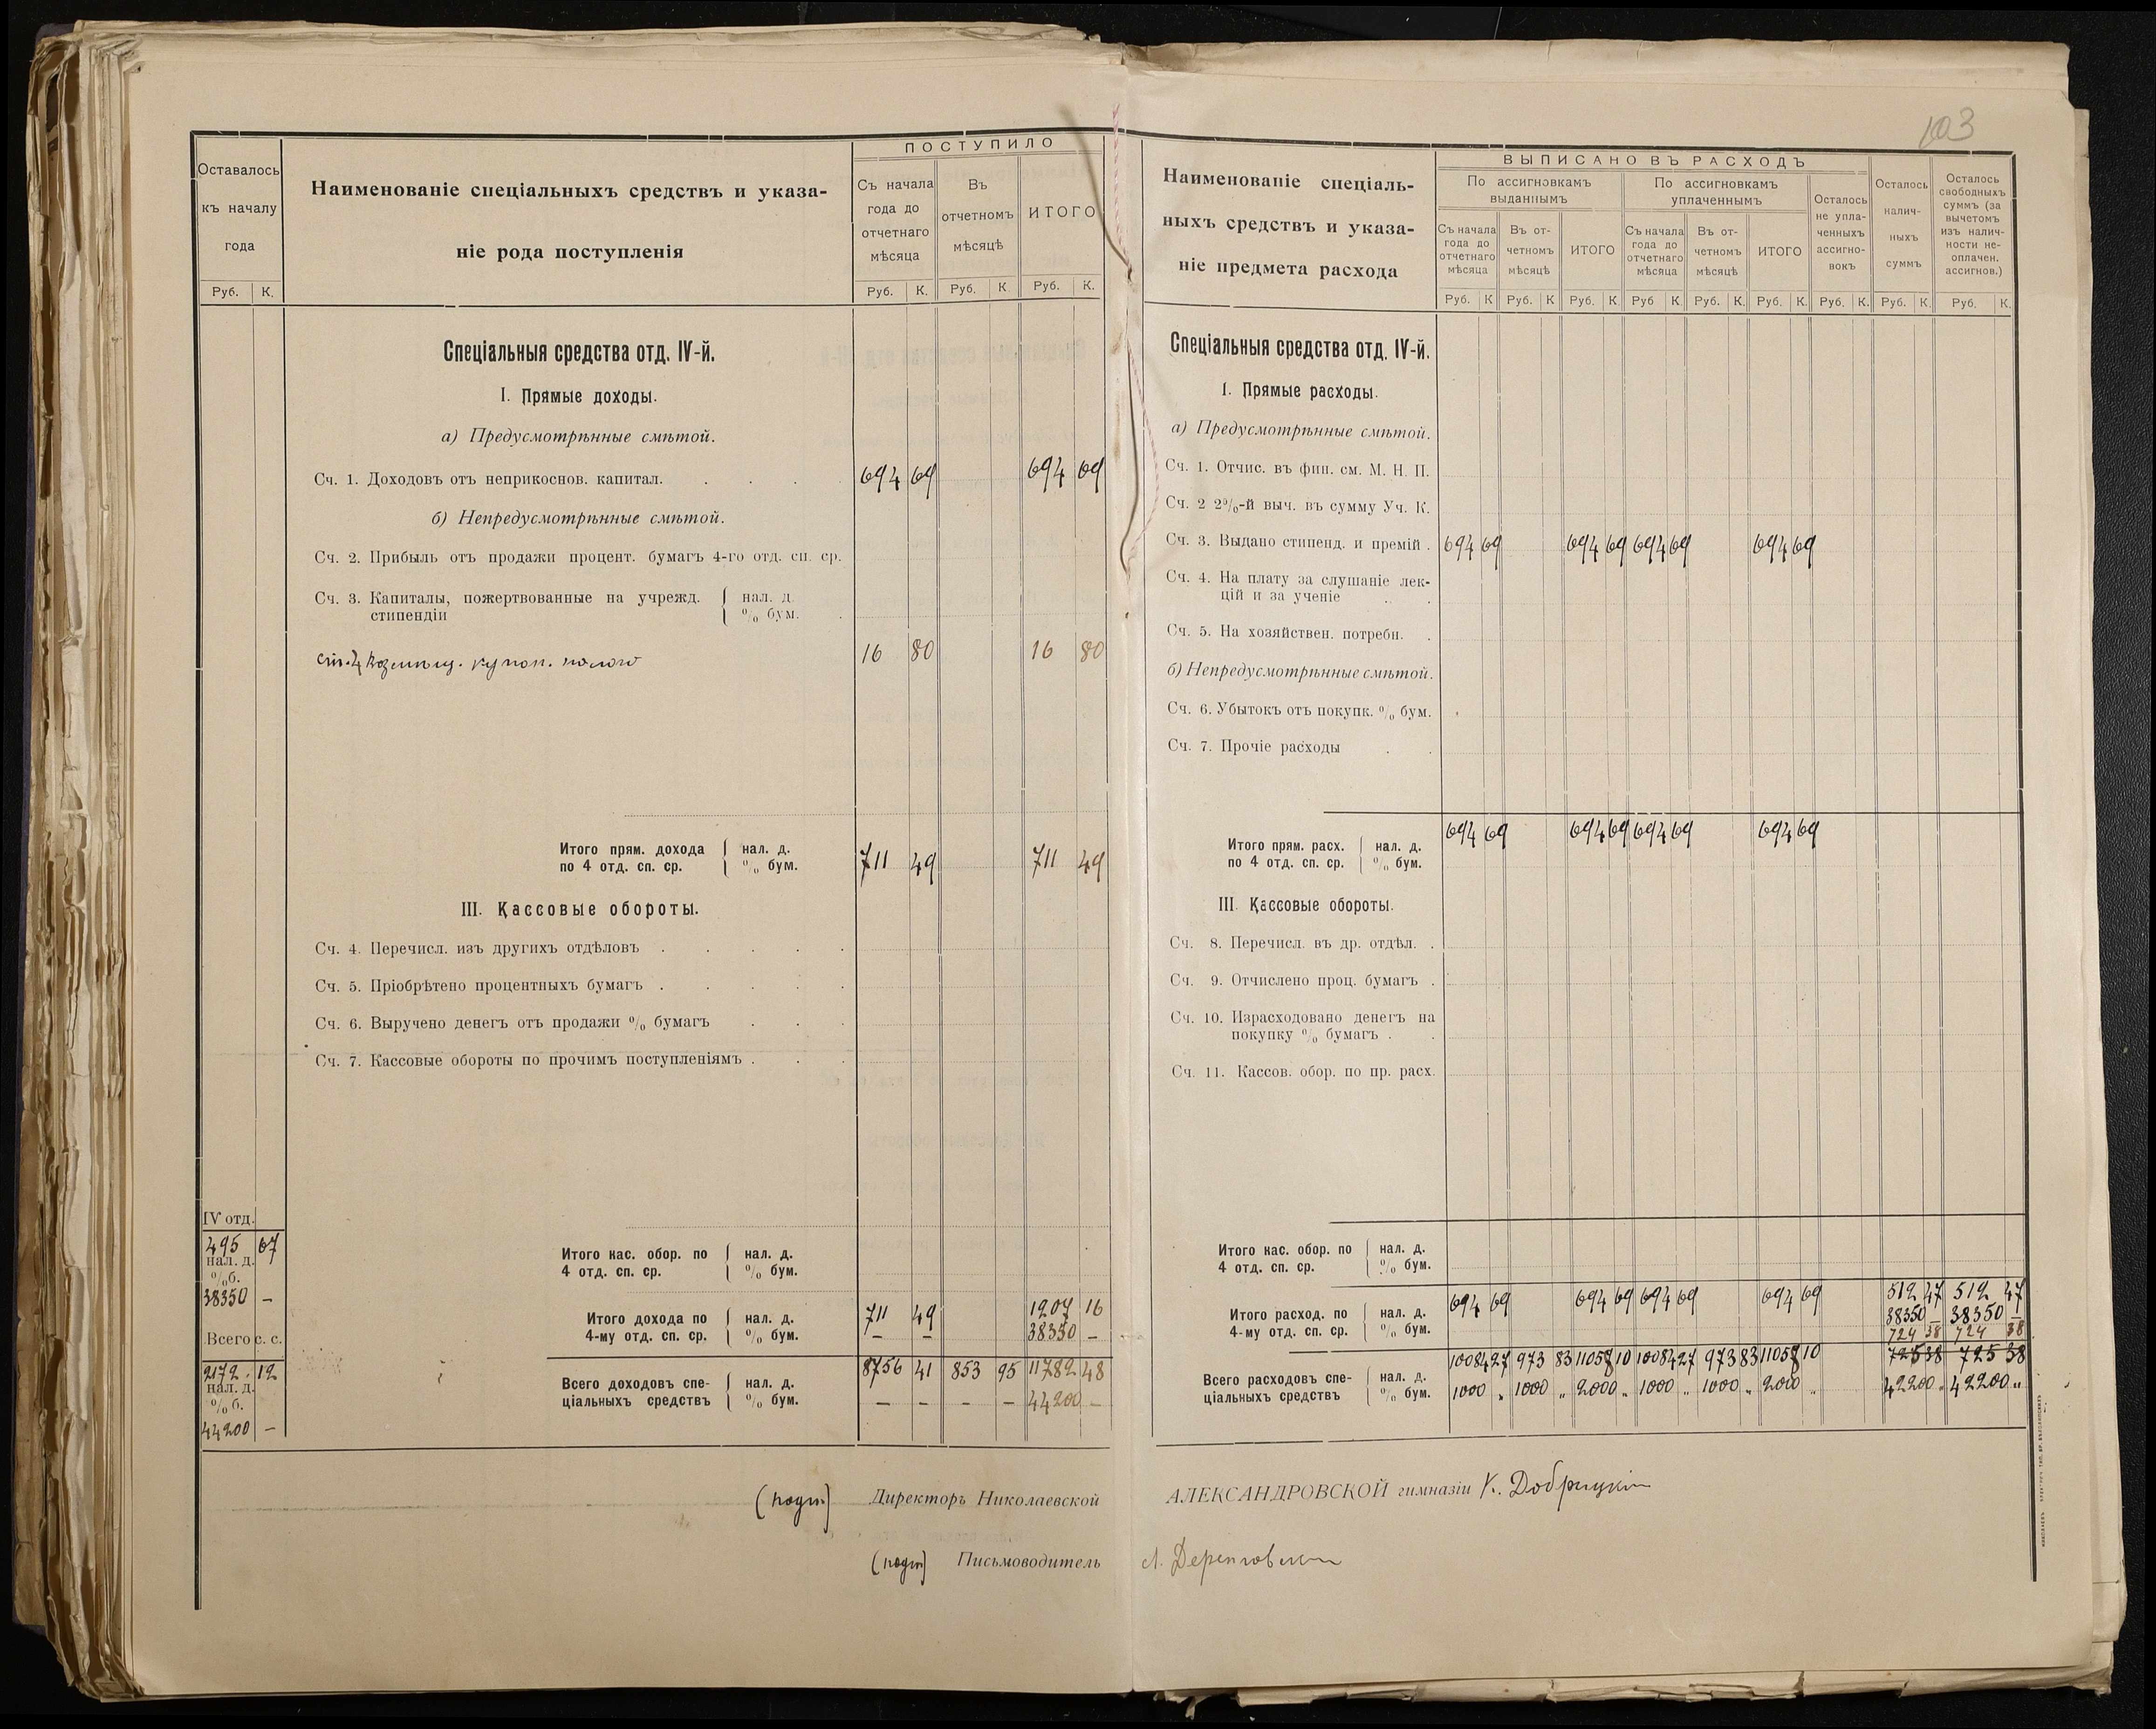 103
Оставалось
къ началу
года
Руб. К.
Наименованіе спеціальныхъ средствъ и указа-
ніе рода поступленія
ПОСТУПИЛО
Съ начала
года до
отчетнаго
мѣсяца
Въ
отчетномъ
мѣсяцѣ
ИТОГО
Руб. К. Руб. К Руб. К.
Спеціальныя средства отд. IV-й.
I. Прямые доходы.
а) Предусмотрѣнные смѣтой.
Сч. 1. Доходовъ отъ неприкоснов. капитал. 694 69 694 69
б) Непредусмотрѣнные смѣтой.
Сч. 2. Прибыль отъ продажи процент. бумагъ 4-го отд. сп. ср.
Сч. 3. Капиталы, пожертвованные на учрежд. нал. д.
стипендіи % бум.
купон. 16 80 16 80
Итого прям. дохода нал. д.
по 4 отд. сп. ср. % бум.
711 49 711 49
III. Кассовые обороты.
Сч. 4. Перечисл. изъ другихъ отдѣловъ
Сч. 5. Пріобрѣтено процентныхъ бумагъ
Сч. 6. Выручено денегъ отъ продажи % бумагъ
Сч. 7. Кассовые обороты по прочимъ поступленіямъ
IV отд.
495 67
нал. д.
% б.
38350 —
Всего с. с.
2172 12
нал. д.
% б.
44200 —
Итого кас. обор. по нал. д.
4 отд. сп. ср. % бум.
Итого дохода по нал. д. 711 49 1207 16
4-му отд. сп. ср. % бум. — — 38350 —
Всего доходовъ спе- нал. д. 8756 41 853 95 11782 48
ціальныхъ средствъ % бум. — — — — 44200 —
(подп) Директоръ Николаевской
(подп) Письмоводитель
Наименованіе спеціаль-
ныхъ средствъ и указа-
ніе предмета расхода
ВЫПИСАНО ВЪ РАСХОДЪ
По ассигновкамъ
выданнымъ
По ассигновкамъ
уплаченнымъ
Съ начала
года до
отчетнаго
мѣсяца
Въ от-
четномъ
мѣсяцѣ
ИТОГО
Съ начала
года до
отчетнаго
мѣсяца
Въ от-
четномъ
мѣсяцѣ
ИТОГО
Осталось
не упла-
ченныхъ
ассигно-
вокъ
Осталось
налич-
ныхъ
суммъ
Осталось
свободныхъ
суммъ (за
вычетомъ
изъ налич-
ности не-
оплачен.
ассигнов.)
Руб. К Руб. К Руб. К Руб К Руб. К. Руб. К. Руб. К. Руб. К. Руб. К.
Спеціальныя средства отд. IV-й.
I. Прямые расходы.
а) Предусмотрѣнные смѣтой.
Сч. 1. Отчис. въ фин. см. М. Н. П.
Сч. 2 2%-й выч. въ сумму Уч. К.
Сч. 3. Выдано стипенд. и премій . 694 69 694 69 694 69 694 69
Сч. 4. На плату за слушаніе лек-
цій и за ученіе
Сч. 5. На хозяйствен. потребн.
б) Непредусмотрѣнные смѣтой.
Сч. 6. Убытокъ отъ покупк. % бум.
Сч. 7. Прочіе расходы
694 69 694 69 694 69 694 69
Итого прям. расх. нал. д.
по 4 отд. сп. ср. % бум.
III. Кассовые обороты.
Сч. 8. Перечисл. въ др. отдѣл.
Сч. 9. Отчислено проц. бумагъ
Сч. 10. Израсходовано денегъ на
покупку % бумагъ
Сч. 11. Кассов. обор. по пр. расх.
Итого кас. обор. по нал. д.
4 отд. сп. ср. % бум.
Итого расход. по нал. д. 694 69 694 69 694 69 694 69 512 47 512 47
4-му отд. сп. ср. % бум. 38350 — 38350 —
724 38 724 38
10084 27 973 83 11058 10 10084 27 973 83 11058 10 725 38 725 38
Всего расходовъ спе- нал. д.
ціальныхъ средствъ % бум. 1000 „ 1000 „ 2000 „ 1000 „ 1000 „ 2000 „ 42200 „ 42200 „
АЛЕКСАНДРОВСКОЙ гимназіи К. Добрицкій